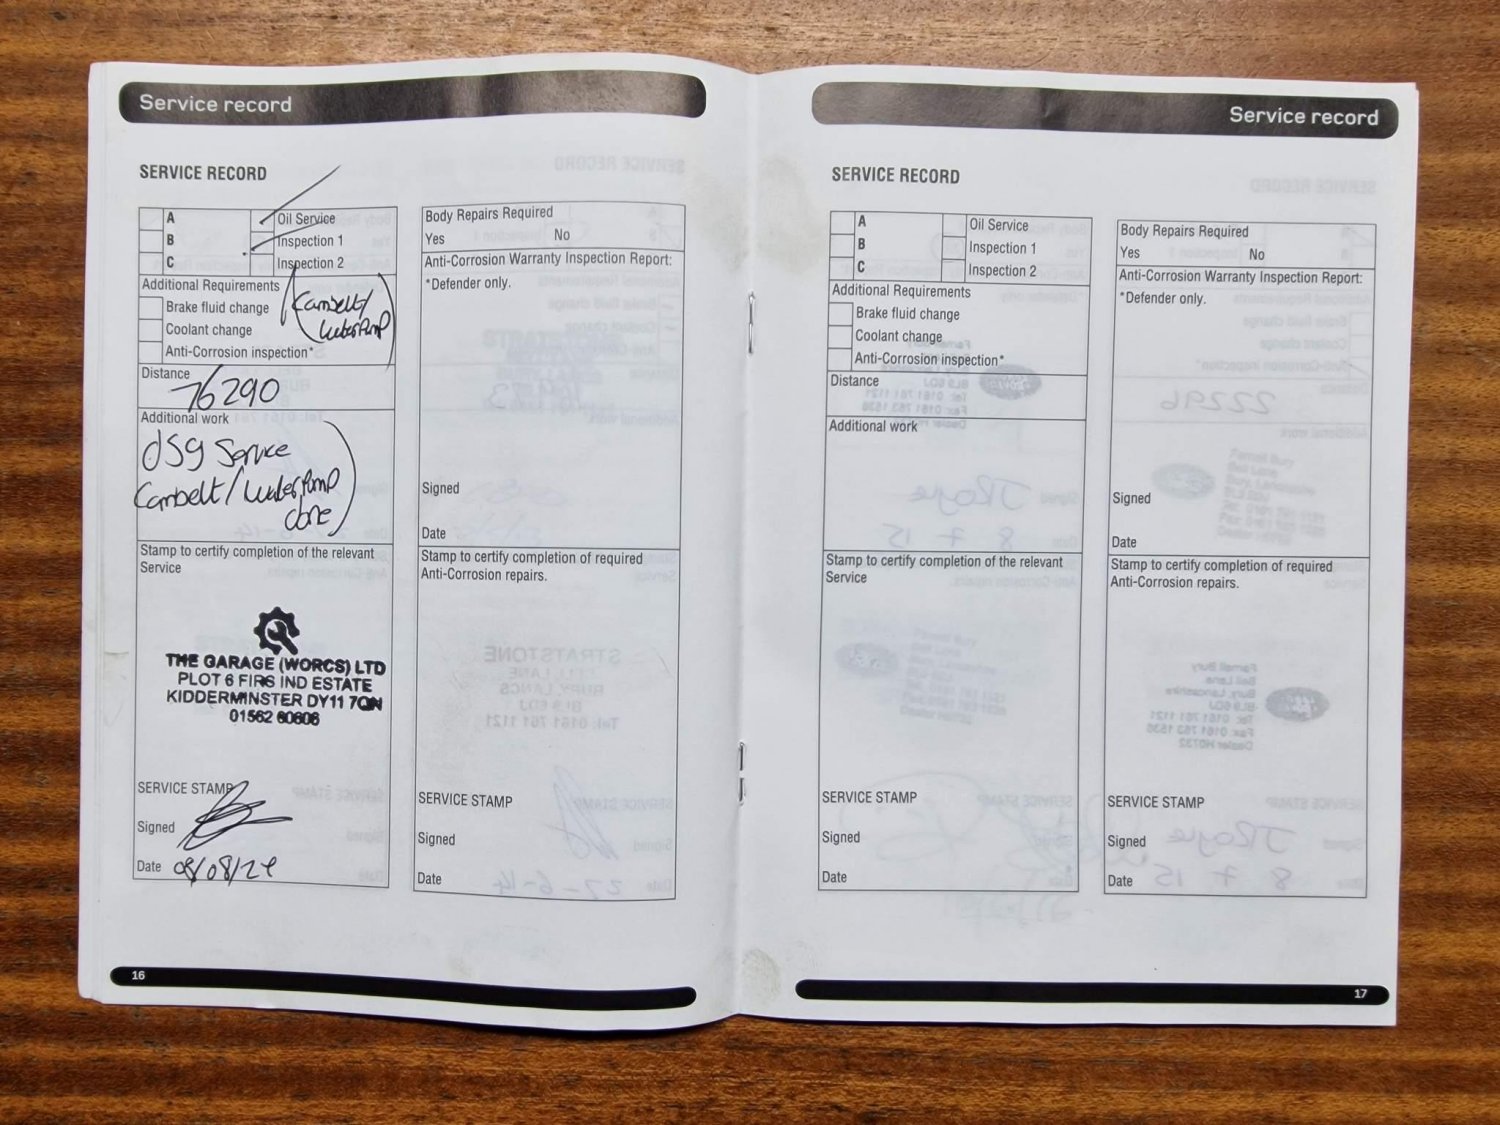 Service record
SERVICE RECORD
A
Oil Service
B
Inspection 1
C
Inspection 2
Additional Requirements
Brake fluid change
Coolant change
Anti-Corrosion inspection*
(Cambelt/
WaterPump)
Distance
76290
Additional work
dsg Service
Cambelt/WaterPump
done
Stamp to certify completion of the relevant
Service
THE GARAGE (WORCS) LTD
PLOT 6 FIRS IND ESTATE
KIDDERMINSTER DY11 7QN
01562 60606
SERVICE STAMP
Signed
Date 08/08/24
Body Repairs Required
Yes No
Anti-Corrosion Warranty Inspection Report:
*Defender only.
Signed
Date
Stamp to certify completion of required
Anti-Corrosion repairs.
SERVICE STAMP
Signed
Date
16
Service record
SERVICE RECORD
A
Oil Service
B
Inspection 1
C
Inspection 2
Additional Requirements
Brake fluid change
Coolant change
Anti-Corrosion inspection*
Distance
Additional work
Stamp to certify completion of the relevant
Service
SERVICE STAMP
Signed
Date
Body Repairs Required
Yes No
Anti-Corrosion Warranty Inspection Report:
*Defender only.
Signed
Date
Stamp to certify completion of required
Anti-Corrosion repairs.
SERVICE STAMP
Signed
Date
17